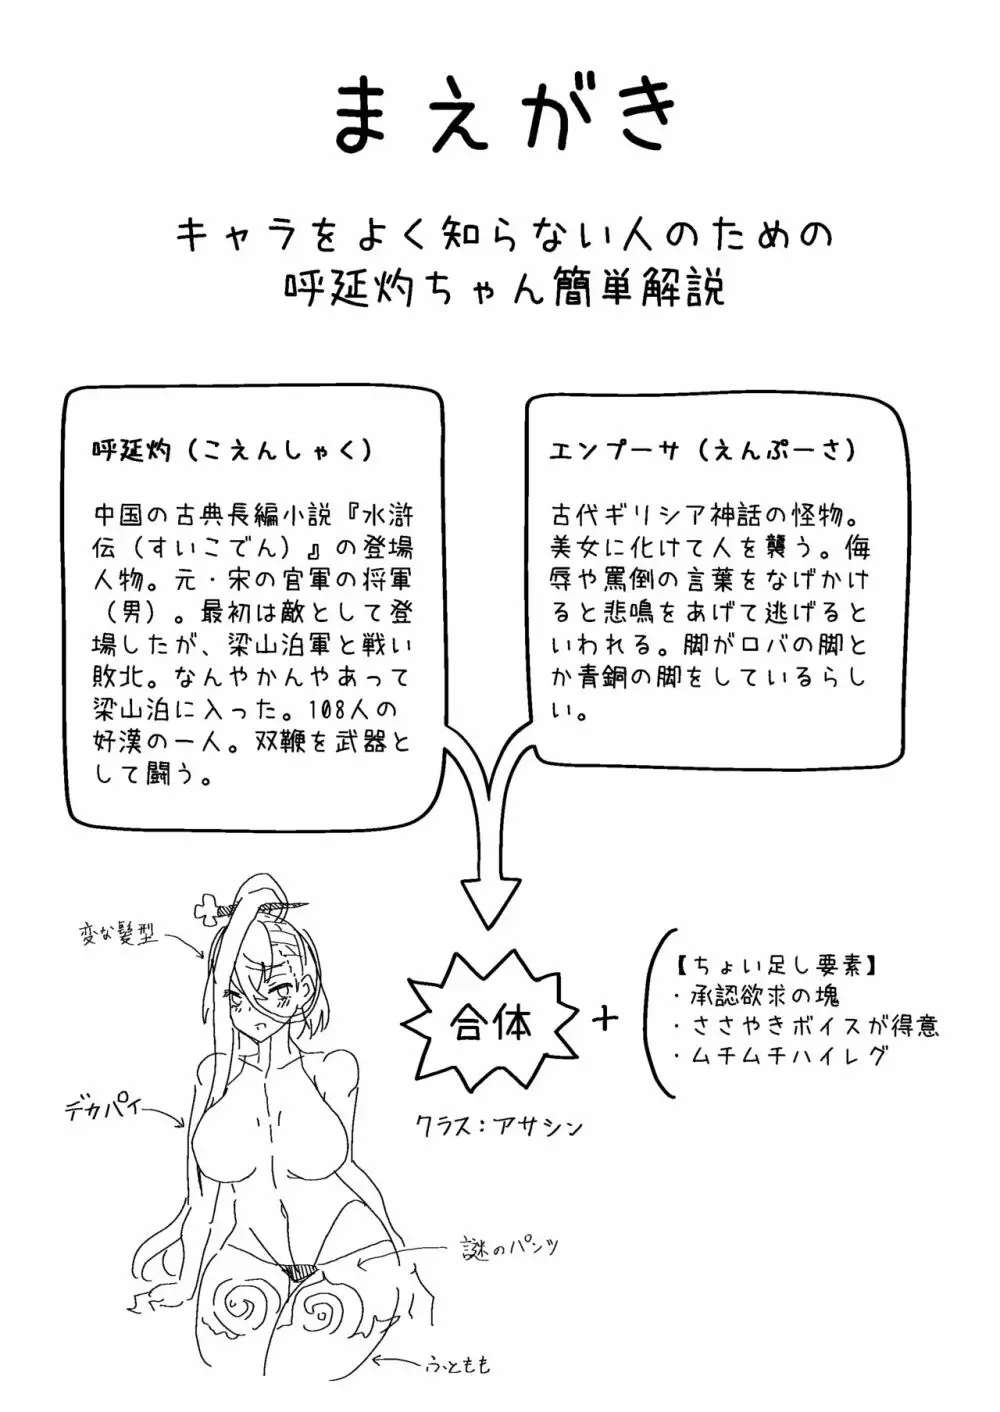 まえがき
キャラをよく知らない人のための
呼延灼ちゃん簡単解説
呼延灼（こえんしゃく）
中国の古典長編小説『水滸
伝（すいこでん）』の登場
人物。元・宋の官軍の将軍
（男）。最初は敵として登
場したが、梁山泊軍と戦い
敗北。なんやかんやあって
梁山泊に入った。108人の
好漢の一人。双鞭を武器と
して闘う。
エンプーサ（えんぷーさ）
古代ギリシア神話の怪物。
美女に化けて人を襲う。侮
辱や罵倒の言葉をなげかけ
ると悲鳴をあげて逃げると
いわれる。脚がロバの脚と
か青銅の脚をしているらし
い。
変な髪型
デカパイ
謎のパンツ
ふともも
合体
クラス：アサシン
+
【ちょい足し要素】
・承認欲求の塊
・ささやきボイスが得意
・ムチムチハイレグ